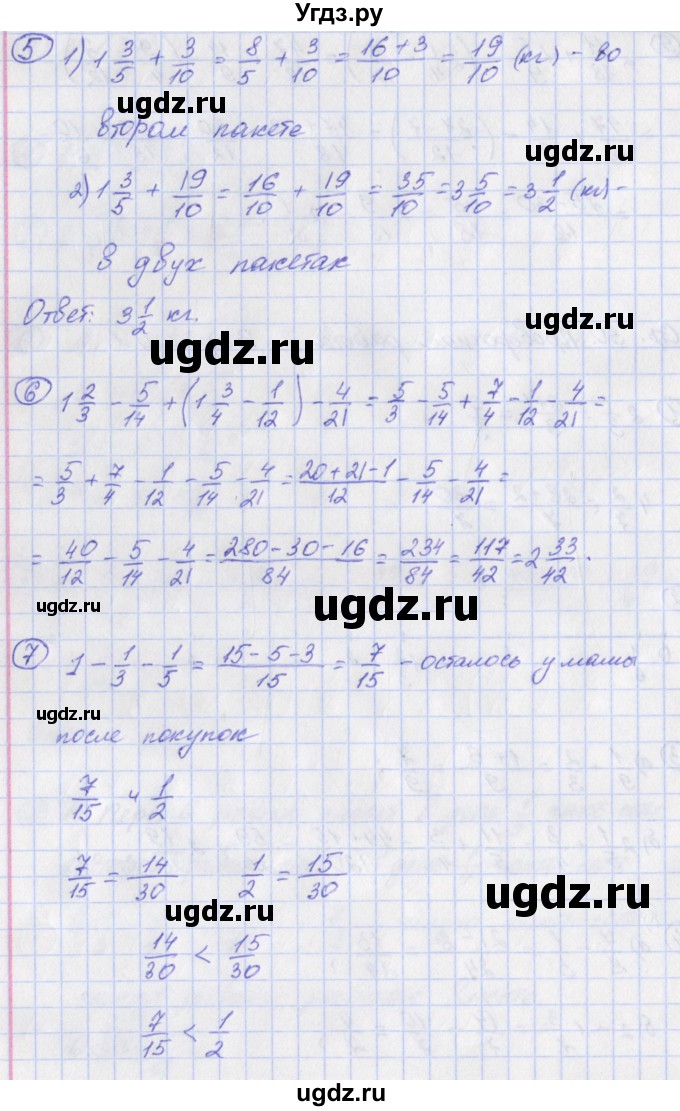 Угдз.ру
5 1) 1 3/5 + 3/10 = 8/5 + 3/10 = (16+3)/10 = 19/10 (кг) - во
ugdz.ru
втором пакете
ugdz.ru
2) 1 3/5 + 19/10 = 16/10 + 19/10 = 35/10 = 3 5/10 = 3 1/2 (кг) -
в двух пакетах
Ответ: 3 1/2 кг.
ugdz.ru
6 1 2/3 - 5/14 + (1 3/4 - 1/12) - 4/21 = 5/3 - 5/14 + 7/4 - 1/12 - 4/21 =
= 5/3 + 7/4 - 1/12 - 5/14 - 4/21 = (20+21-1)/12 - 5/14 - 4/21 =
= 40/12 - 5/14 - 4/21 = (280-30-16)/84 = 234/84 = 117/42 = 2 33/42.
ugdz.ru
ugdz.ru
7 1 - 1/3 - 1/5 = (15-5-3)/15 = 7/15 - осталось у мамы
ugdz.ru
после покупок
7/15 и 1/2
7/15 = 14/30 1/2 = 15/30
ugdz.ru
ugdz.ru
14/30 < 15/30
7/15 < 1/2
ugdz.ru